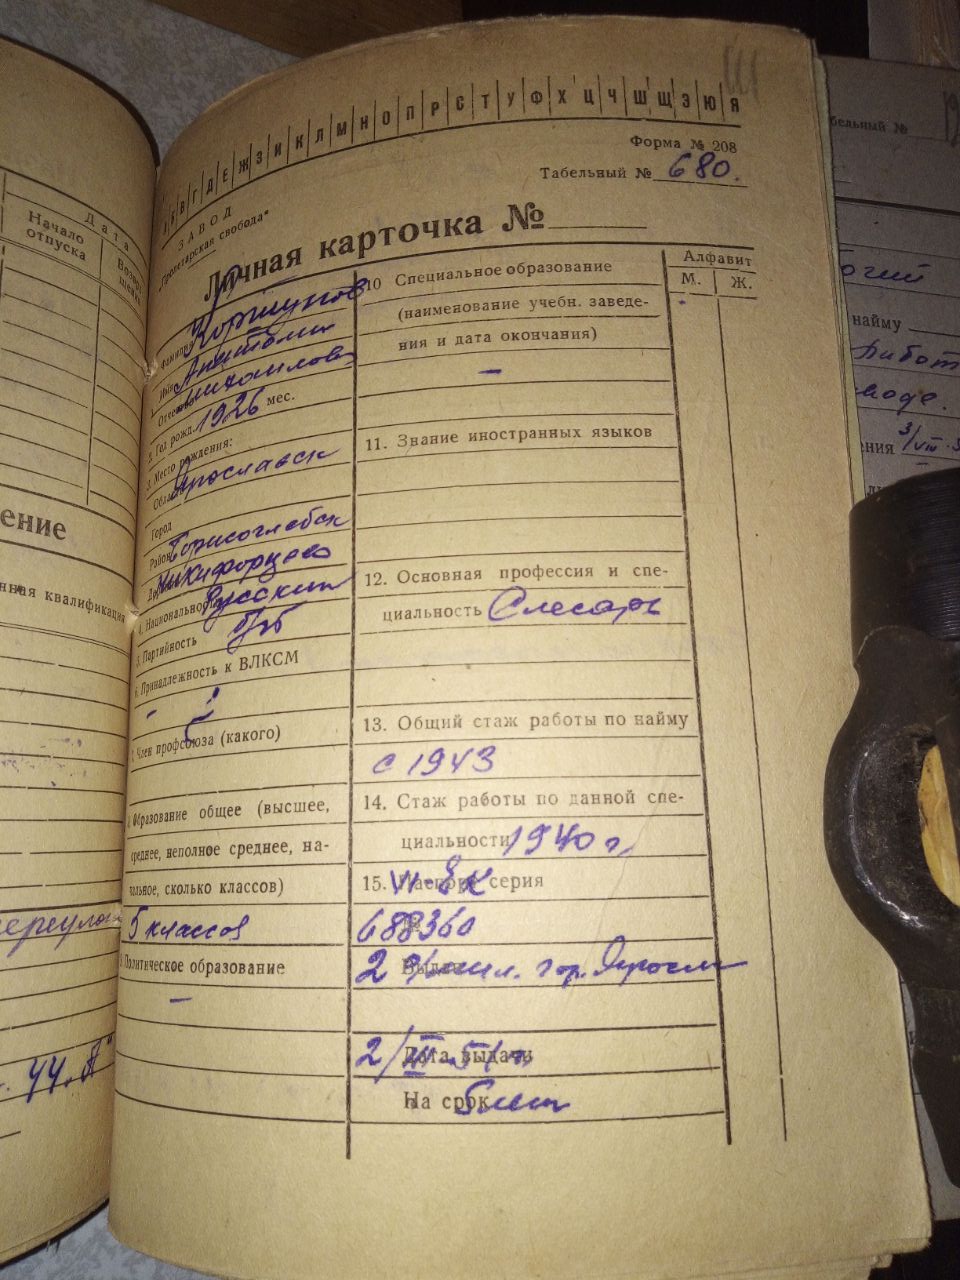 Д а т а
Начало отпуска
ение
нная квалификация
44.
А Б В Г Д Е Ж З И К Л М Н О П Р С Т У Ф Х Ц Ч Ш Щ Э Ю Я
Форма № 208
Табельный № 680.
ЗАВОД
„Пролетарская свобода“
Личная карточка №
1. Фамилия Коршунов
Имя Анатолий
Отчество Михайлович
2. Год рожд. 1926 мес.
3. Место рождения:
Область Ярославск
Город
Район Борисоглебск
Никифорцево
4. Национальность Русский
5. Партийность б/п
6. Принадлежность к ВЛКСМ
-
7. Член профсоюза (какого)
8. Образование общее (высшее,
среднее, неполное среднее, на-
чальное, сколько классов)
5 классов
9. Политическое образование
—
10 Специальное образование
(наименование учебн. заведе-
ния и дата окончания)
—
11. Знание иностранных языков
12. Основная профессия и спе-
циальность Слесарь
13. Общий стаж работы по найму
с 1943
14. Стаж работы по данной спе-
циальности 1940 г.
15. Паспорт серия
688360
Выдан 2 гор.
2/III-51г. Дата выдачи
На срок 5 лет
Алфавит
М. Ж.
бельный №
найму
ения 3/VIII